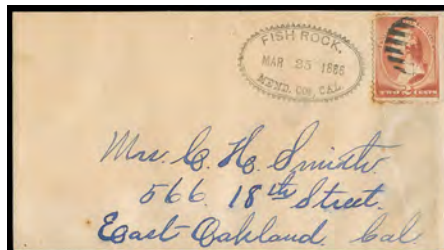 FISH ROCK,
MAR 25 1886
MEND. CO., CAL.
TWO 2 CENTS
Mrs. C. H. Smith
566 18th Street.
East Oakland Cal